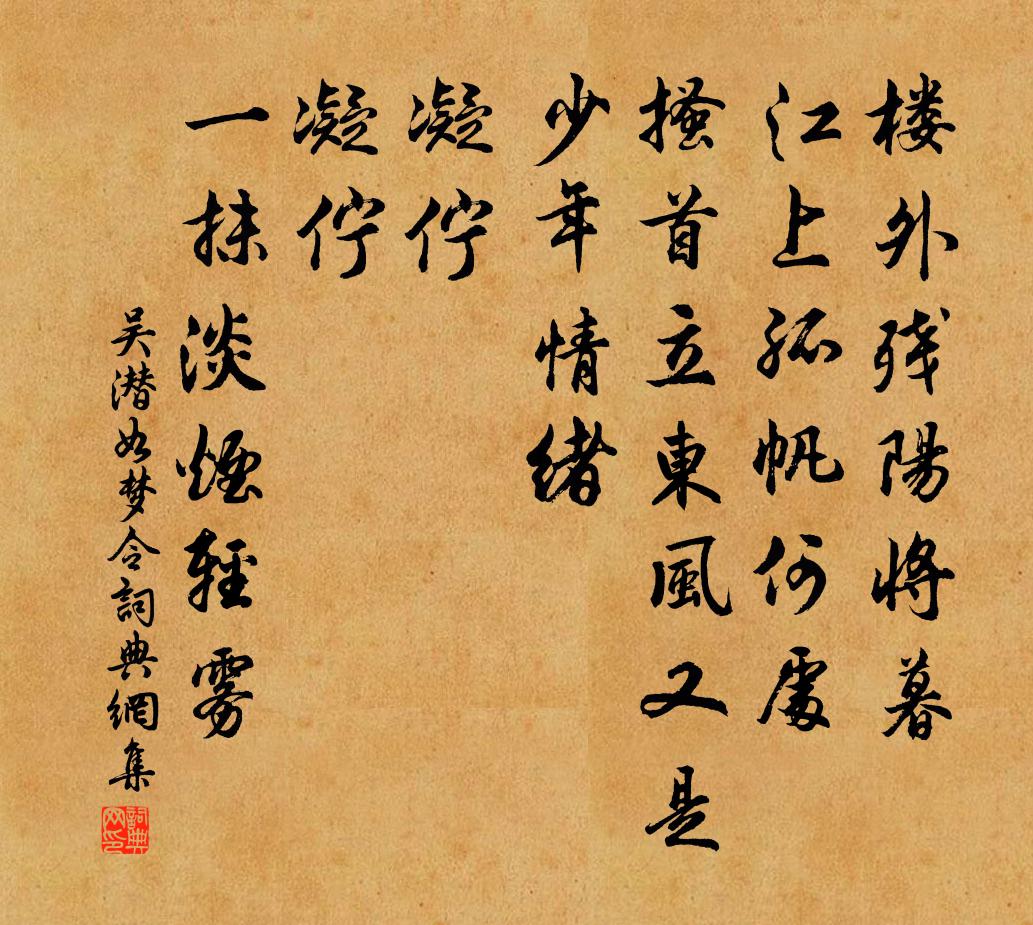 楼外残陽将暮
江上孤帆何處
搔首立東風又是
少年情緒
凝佇
凝佇
一抹淡煙輕雾
吴潜如梦令詞典網集
詞典网印